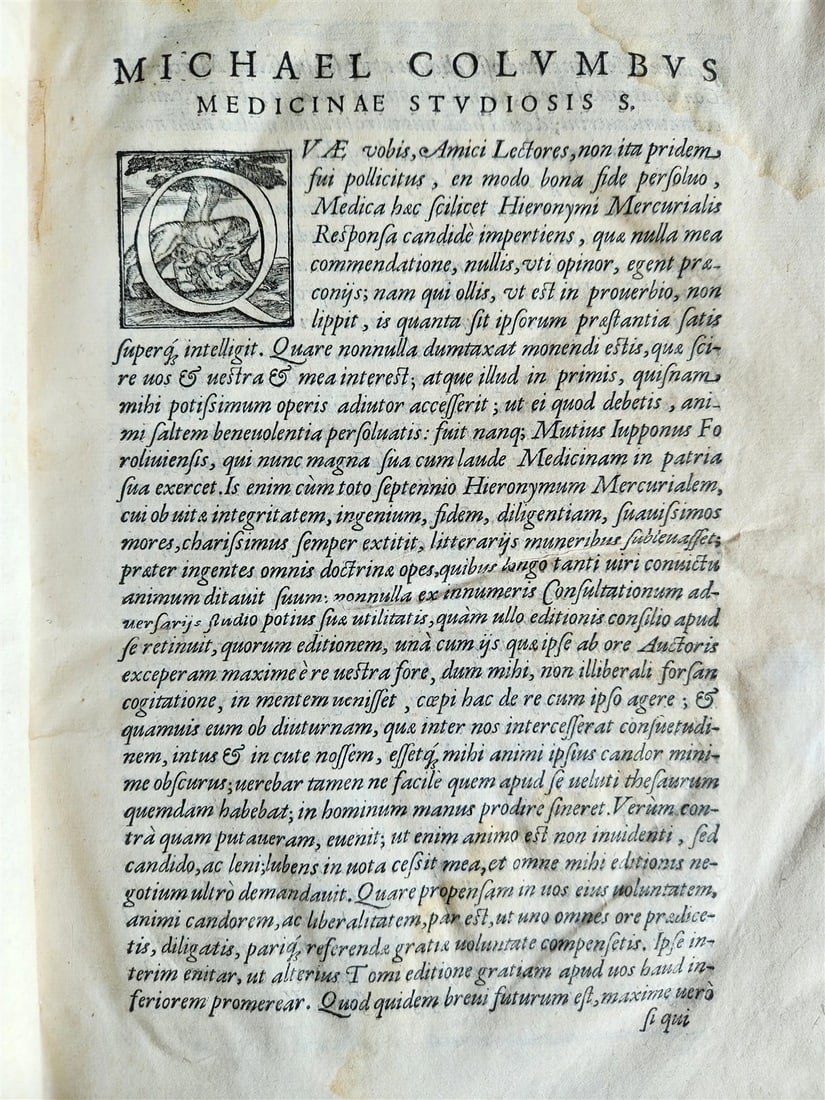 MICHAEL COLVMBVS
MEDICINAE STVDIOSIS S.
QVÆ vobis, Amici Lectores, non ita pridem
fui pollicitus, en modo bona fide persoluo,
Medica hæc scilicet Hieronymi Mercurialis
Responsa candidè impertiens, quæ nulla mea
commendatione, nullis, vti opinor, egent præ-
conijs; nam qui ollis, vt est in prouerbio, non
lippit, is quanta sit ipsorum præstantia satis
superq́; intelligit. Quare nonnulla dumtaxat monendi estis, quæ sci-
re uos & uestra & mea interest; atque illud in primis, quisnam
mihi potissimum operis adiutor accesserit; ut ei quod debetis, ani-
mi saltem beneuolentia persoluatis: fuit nanq; Mutius Iupponus Fo
roliuiensis, qui nunc magna sua cum laude Medicinam in patria
sua exercet. Is enim cùm toto septennio Hieronymum Mercurialem,
cui ob uitæ integritatem, ingenium, fidem, diligentiam, suauissimos
mores, charissimus semper extitit, litterarijs muneribus subleuasset;
præter ingentes omnis doctrinæ opes, quibus longo tanti uiri conuictu
animum ditauit suum: nonnulla ex innumeris Consultationum ad-
uersarijs studio potius suæ utilitatis, quàm ullo editionis consilio apud
se retinuit, quorum editionem, unà cum ijs quæ ipse ab ore Auctoris
exceperam maxime è re uestra fore, dum mihi, non illiberali forsan
cogitatione, in mentem uenisset, cœpi hac de re cum ipso agere; &
quamuis eum ob diuturnam, quæ inter nos intercesserat consuetudi-
nem, intus & in cute nossem, essetq́; mihi animi ipsius candor mini-
me obscurus; uerebar tamen ne facilè quem apud se ueluti thesaurum
quemdam habebat; in hominum manus prodire sineret. Verùm con-
trà quam putaueram, euenit; ut enim animo est non inuidenti, sed
candido, ac leni; lubens in uota cessit mea, et omne mihi editionis ne-
gotium ultrò demandauit. Quare propensam in uos eius uoluntatem,
animi candorem, ac liberalitatem, par est, ut uno omnes ore prædice-
tis, diligatis, pariq́; referendæ gratiæ uoluntate compensetis. Ipse in-
terim enitar, ut alterius Tomi editione gratiam apud uos haud in-
feriorem promerear. Quod quidem breui futurum est, maxime uerò
si qui